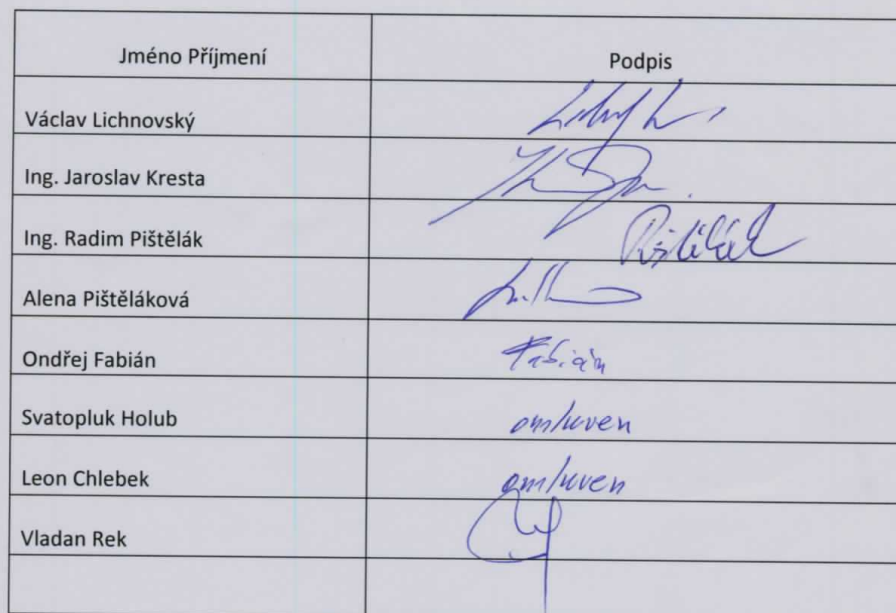 Jméno Příjmení Podpis
Václav Lichnovský
Ing. Jaroslav Kresta
Ing. Radim Pištělák Pištělák
Alena Pištěláková
Ondřej Fabián Fabián
Svatopluk Holub omluven
Leon Chlebek omluven
Vladan Rek